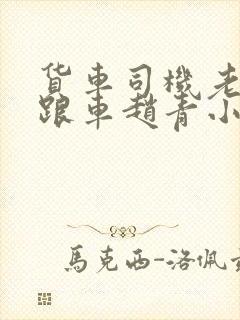 貨車司機老
跟車趙青小
馬克西-洛佩